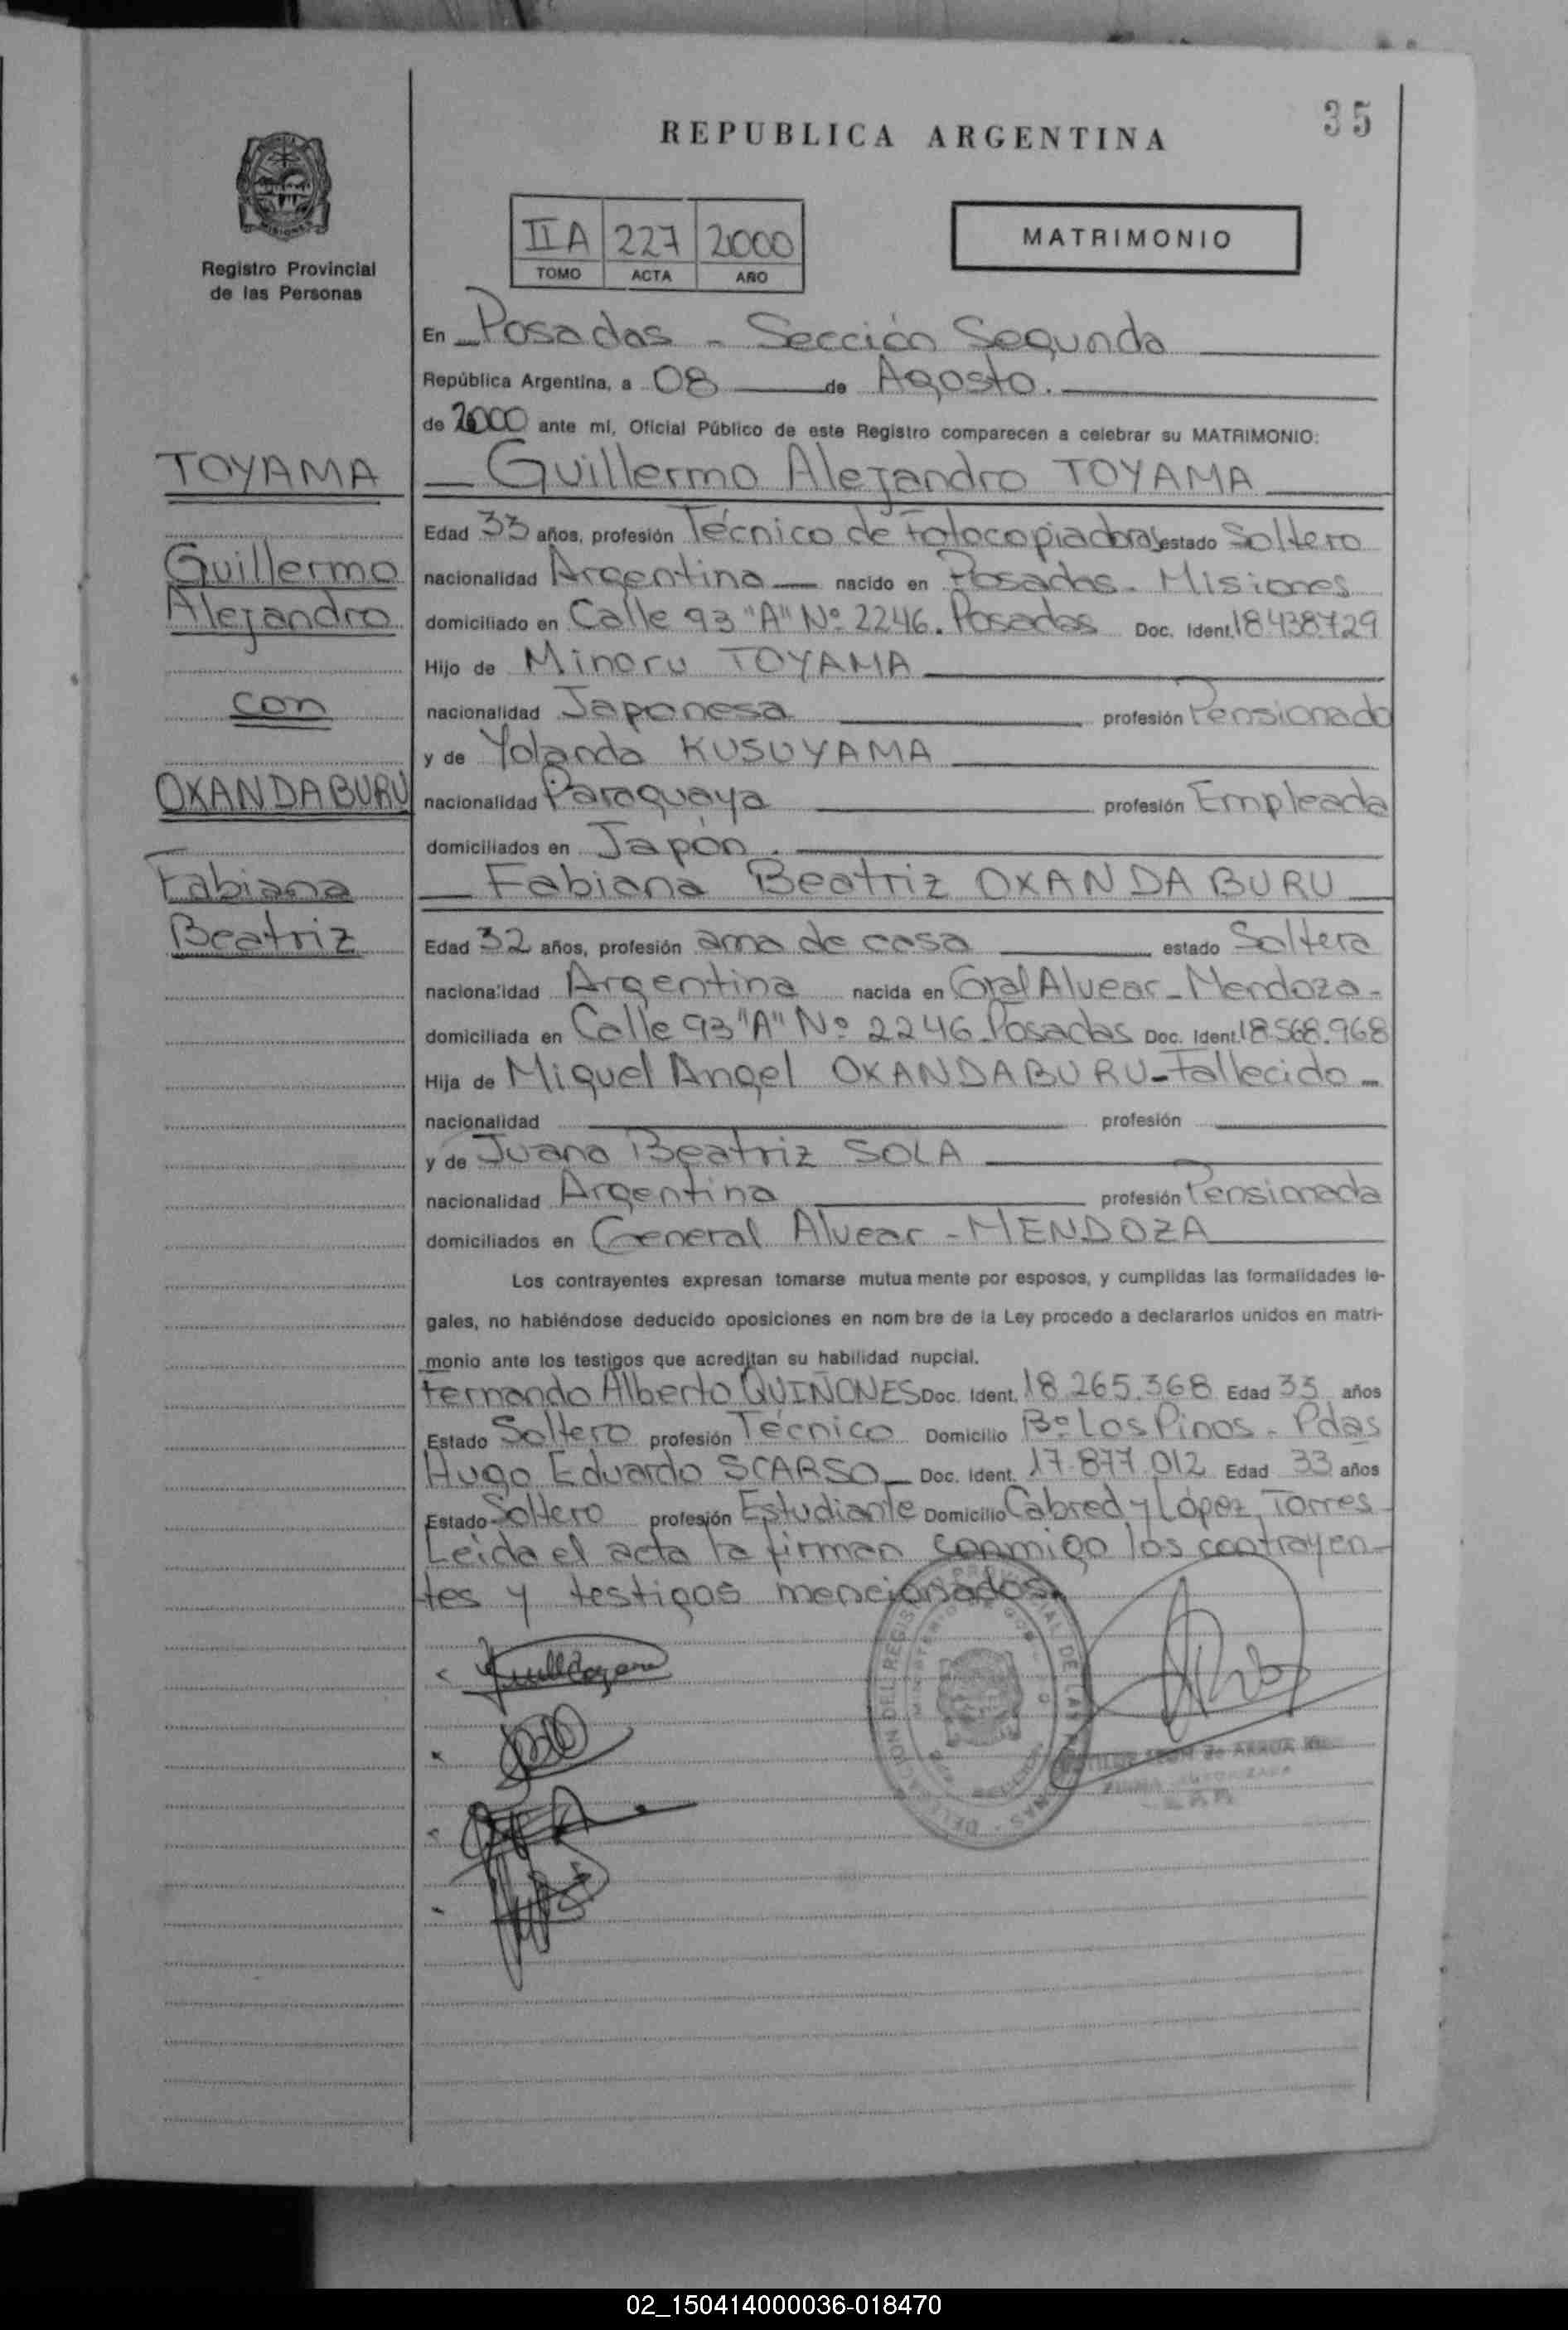 35
REPUBLICA ARGENTINA
Registro Provincial
de las Personas
II A 227 2000
TOMO ACTA AÑO
MATRIMONIO
En Posadas - Sección Segunda
República Argentina, a 08 de Agosto.
de 2000 ante mí, Oficial Público de este Registro comparecen a celebrar su MATRIMONIO:
TOYAMA
Guillermo
Alejandro
con
OXANDABURU
Fabiana
Beatriz
Guillermo Alejandro TOYAMA
Edad 33 años, profesión Técnico de Fotocopiadoras estado Soltero
nacionalidad Argentina nacido en Posadas - Misiones
domiciliado en Calle 93 "A" Nº 2246. Posadas Doc. Ident. 18.438.729
Hijo de Minoru TOYAMA
nacionalidad Japonesa profesión Pensionado
y de Yolanda KUSUYAMA
nacionalidad Paraguaya profesión Empleada
domiciliados en Japón.
Fabiana Beatriz OXANDABURU
Edad 32 años, profesión ama de casa estado Soltera
nacionalidad Argentina nacida en Gral Alvear - Mendoza -
domiciliada en Calle 93 "A" Nº 2246. Posadas Doc. Ident. 18.568.968
Hija de Miguel Angel OXANDABURU - Fallecido -
nacionalidad profesión
y de Juana Beatriz SOLA
nacionalidad Argentina profesión Pensionada
domiciliados en General Alvear - MENDOZA
Los contrayentes expresan tomarse mutua mente por esposos, y cumplidas las formalidades le-
gales, no habiéndose deducido oposiciones en nom bre de la Ley procedo a declararlos unidos en matri-
monio ante los testigos que acreditan su habilidad nupcial.
Fernando Alberto QUIÑONES Doc. Ident. 18.265.368 Edad 33 años
Estado Soltero profesión Técnico Domicilio Bº Los Pinos - Pdas
Hugo Eduardo SCARSO Doc. Ident. 17.877.012 Edad 33 años
Estado Soltero profesión Estudiante Domicilio Cabred y López Torres
Leída el acta la firman conmigo los contrayen-
tes y testigos mencionados.
02_150414000036-018470